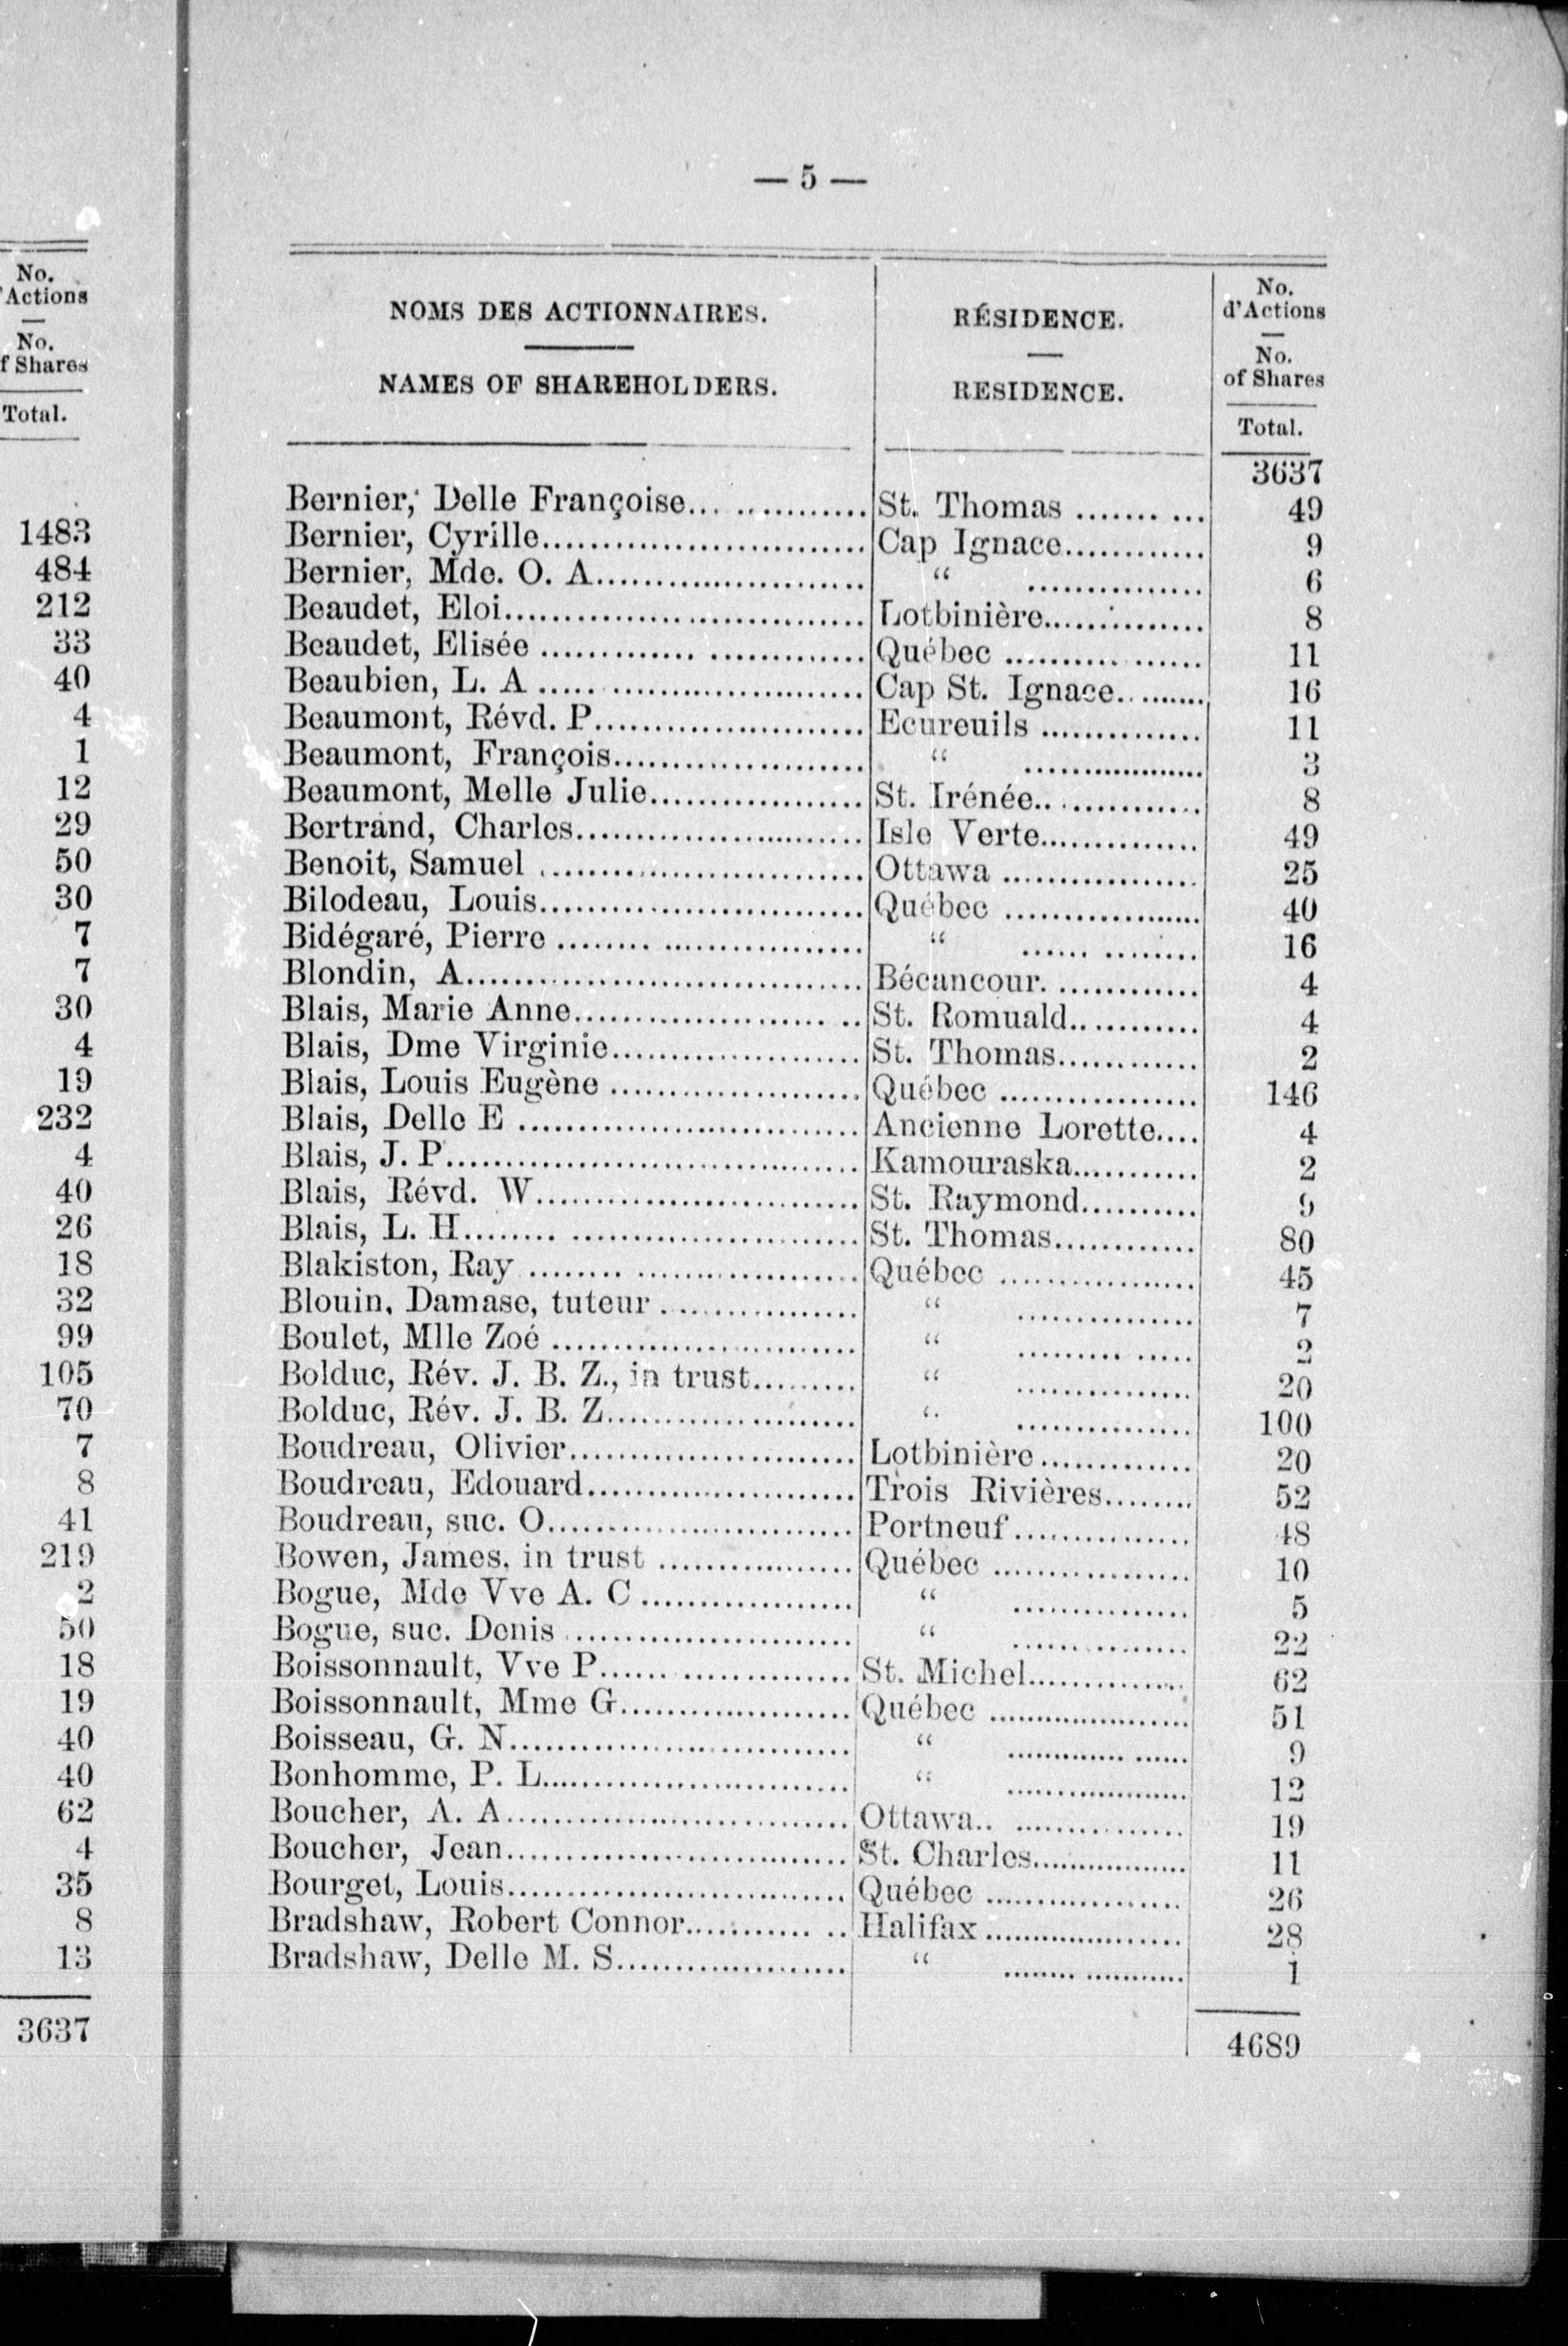 No.
'Actions
No.
f Shares
Total.
1483
484
212
33
40
4
1
12
29
50
30
7
7
30
4
19
232
4
40
26
18
32
99
105
70
7
8
41
219
2
50
18
19
40
40
62
4
35
8
13
3637
— 5 —
NOMS DES ACTIONNAIRES.
NAMES OF SHAREHOLDERS.
RÉSIDENCE.
RESIDENCE.
No.
d'Actions
No.
of Shares
Total.
3637
Bernier, Delle Françoise............... St. Thomas .......... 49
Bernier, Cyrille............... Cap Ignace.......... 9
Bernier, Mde. O. A............... “ .......... 6
Beaudet, Eloi............... Lotbinière.......... 8
Beaudet, Elisée ............... Québec .......... 11
Beaubien, L. A ............... Cap St. Ignace.......... 16
Beaumont, Révd. P............... Ecureuils .......... 11
Beaumont, François............... “ .......... 3
Beaumont, Melle Julie............... St. Irénée.......... 8
Bertrand, Charles............... Isle Verte.......... 49
Benoit, Samuel ............... Ottawa .......... 25
Bilodeau, Louis............... Québec .......... 40
Bidégaré, Pierre ............... “ .......... 16
Blondin, A............... Bécancour. .......... 4
Blais, Marie Anne............... St. Romuald.......... 4
Blais, Dme Virginie............... St. Thomas.......... 2
Blais, Louis Eugène ............... Québec .......... 146
Blais, Delle E ............... Ancienne Lorette.... 4
Blais, J. P............... Kamouraska.......... 2
Blais, Révd. W............... St. Raymond.......... 9
Blais, L. H............... St. Thomas.......... 80
Blakiston, Ray ............... Québec .......... 45
Blouin, Damase, tuteur ............... “ .......... 7
Boulet, Mlle Zoé ............... “ .......... 2
Bolduc, Rév. J. B. Z., in trust.......... “ .......... 20
Bolduc, Rév. J. B. Z............... “ .......... 100
Boudreau, Olivier............... Lotbinière.......... 20
Boudreau, Edouard............... Trois Rivières........ 52
Boudreau, suc. O............... Portneuf.......... 48
Bowen, James, in trust ............... Québec .......... 10
Bogue, Mde Vve A. C ............... “ .......... 5
Bogue, suc. Denis ............... “ .......... 22
Boissonnault, Vve P............... St. Michel.......... 62
Boissonnault, Mme G............... Québec .......... 51
Boisseau, G. N............... “ .......... 9
Bonhomme, P. L............... “ .......... 12
Boucher, A. A............... Ottawa.. .......... 19
Boucher, Jean............... St. Charles.......... 11
Bourget, Louis............... Québec .......... 26
Bradshaw, Robert Connor............... Halifax .......... 28
Bradshaw, Delle M. S............... “ .......... 1
4689